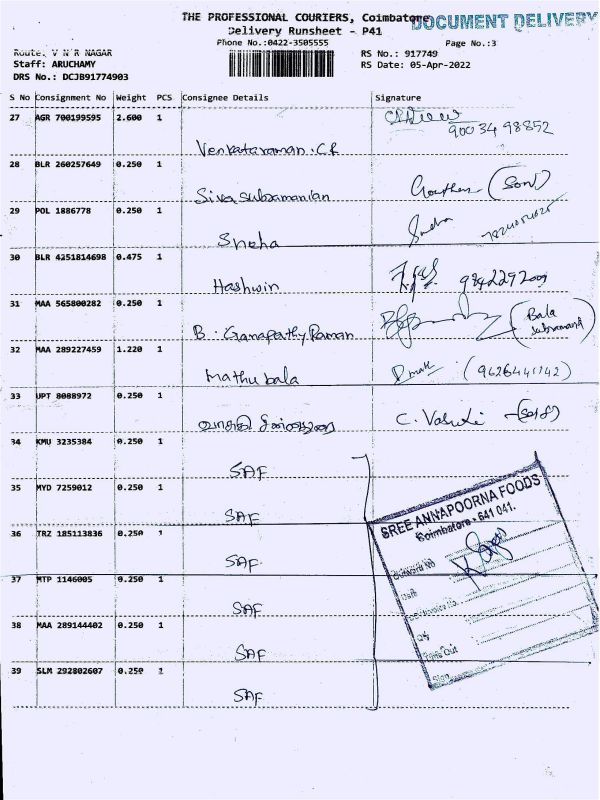 THE PROFESSIONAL COURIERS, Coimbatore
DOCUMENT DELIVERY
Delivery Runsheet - P41
Phone No.:0422-3505555
Page No.:3
Route: V N R NAGAR
RS No.: 917749
Staff: ARUCHAMY
RS Date: 05-Apr-2022
DRS No.: DCJB91774903
S No Consignment No Weight PCS Consignee Details Signature
27 AGR 700199595 2.600 1
90034 98852
Venkataraman.CR
28 BLR 260257649 0.250 1
Siva subramanian (Son)
29 POL 1886778 0.250 1
Sneha Sneha
30 BLR 4251814698 0.475 1
Hashwin
31 MAA 565800282 0.250 1
B. Ganapathy Raman (Bala subramani)
32 MAA 289227459 1.220 1
Mathu bala (9626441142)
33 UPT 8088972 0.250 1
C. Vasuki
34 KMU 3235384 0.250 1
SAF
35 MYD 7259012 0.250 1
SAF
36 TRZ 185113836 0.250 1
SAF
37 MTP 1146005 0.250 1
SAF
38 MAA 289144402 0.250 1
SAF
39 SLM 292802607 0.250 1
SAF
SREE ANNAPOORNA FOODS
Coimbatore - 641 041.
Date
Qty
Time Out
Sign